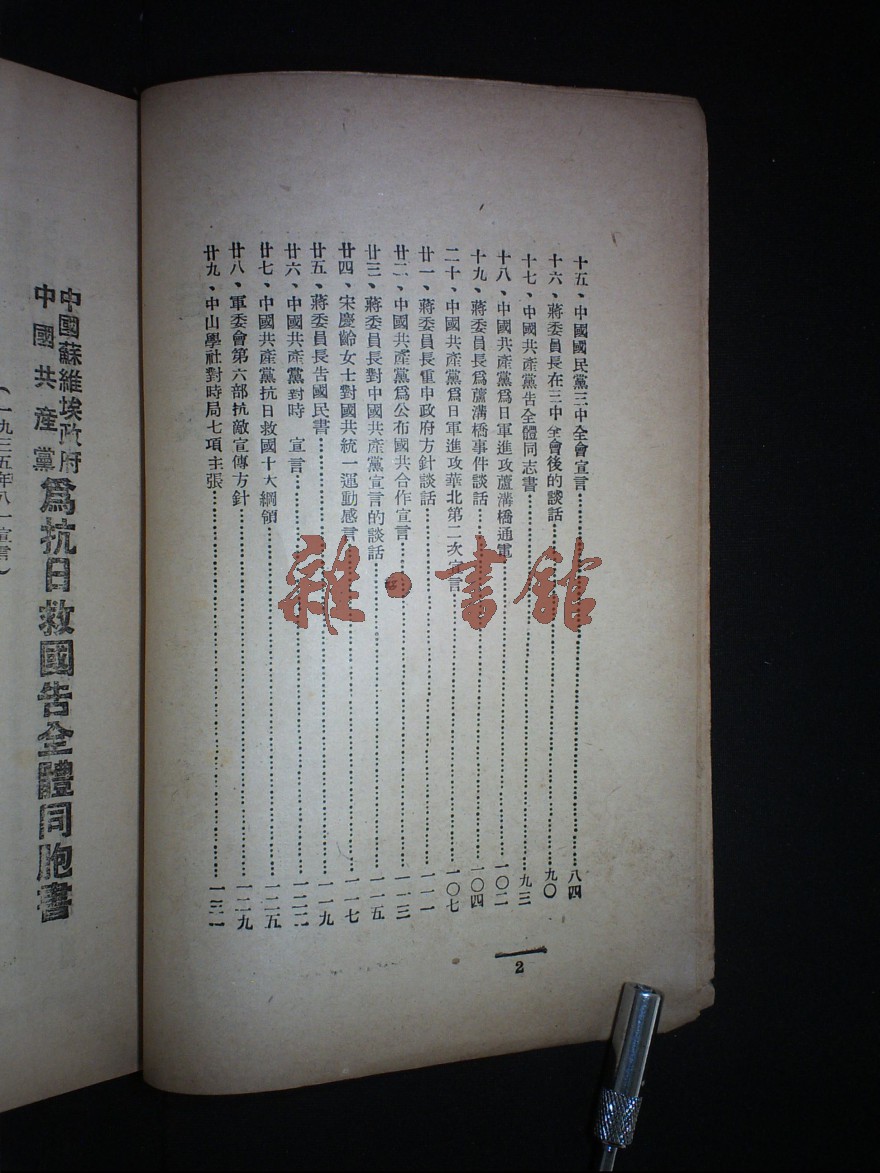 十五、中國國民黨三中全會宣言……八四
十六、蔣委員長在三中全會後的談話……九〇
十七、中國共產黨告全體同志書……九三
十八、中國共產黨爲日軍進攻蘆溝橋通電……一〇二
十九、蔣委員長爲蘆溝橋事件談話……一〇四
二十、中國共產黨爲日軍進攻華北第二次宣言……一〇七
廿一、蔣委員長重申政府方針談話……一一一
廿二、中國共產黨爲公布國共合作宣言……一一三
廿三、蔣委員長對中國共產黨宣言的談話……一一五
廿四、宋慶齡女士對國共統一運動感言……一一七
廿五、蔣委員長告國民書……一一九
廿六、中國共產黨對時 宣言……一二二
廿七、中國共產黨抗日救國十大綱領……一二五
廿八、軍委會第六部抗敵宣傳方針……一二九
廿九、中山學社對時局七項主張……一三一
2
中國蘇維埃政府
中國共產黨
爲抗日救國告全體同胞書
(一九三五年八一宣言)
雜·書館